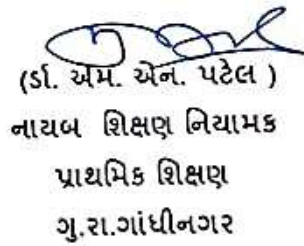 (ર્ડા. એમ. એન. પટેલ )
નાયબ શિક્ષણ નિયામક
પ્રાથમિક શિક્ષણ
ગુ.રા.ગાંધીનગર